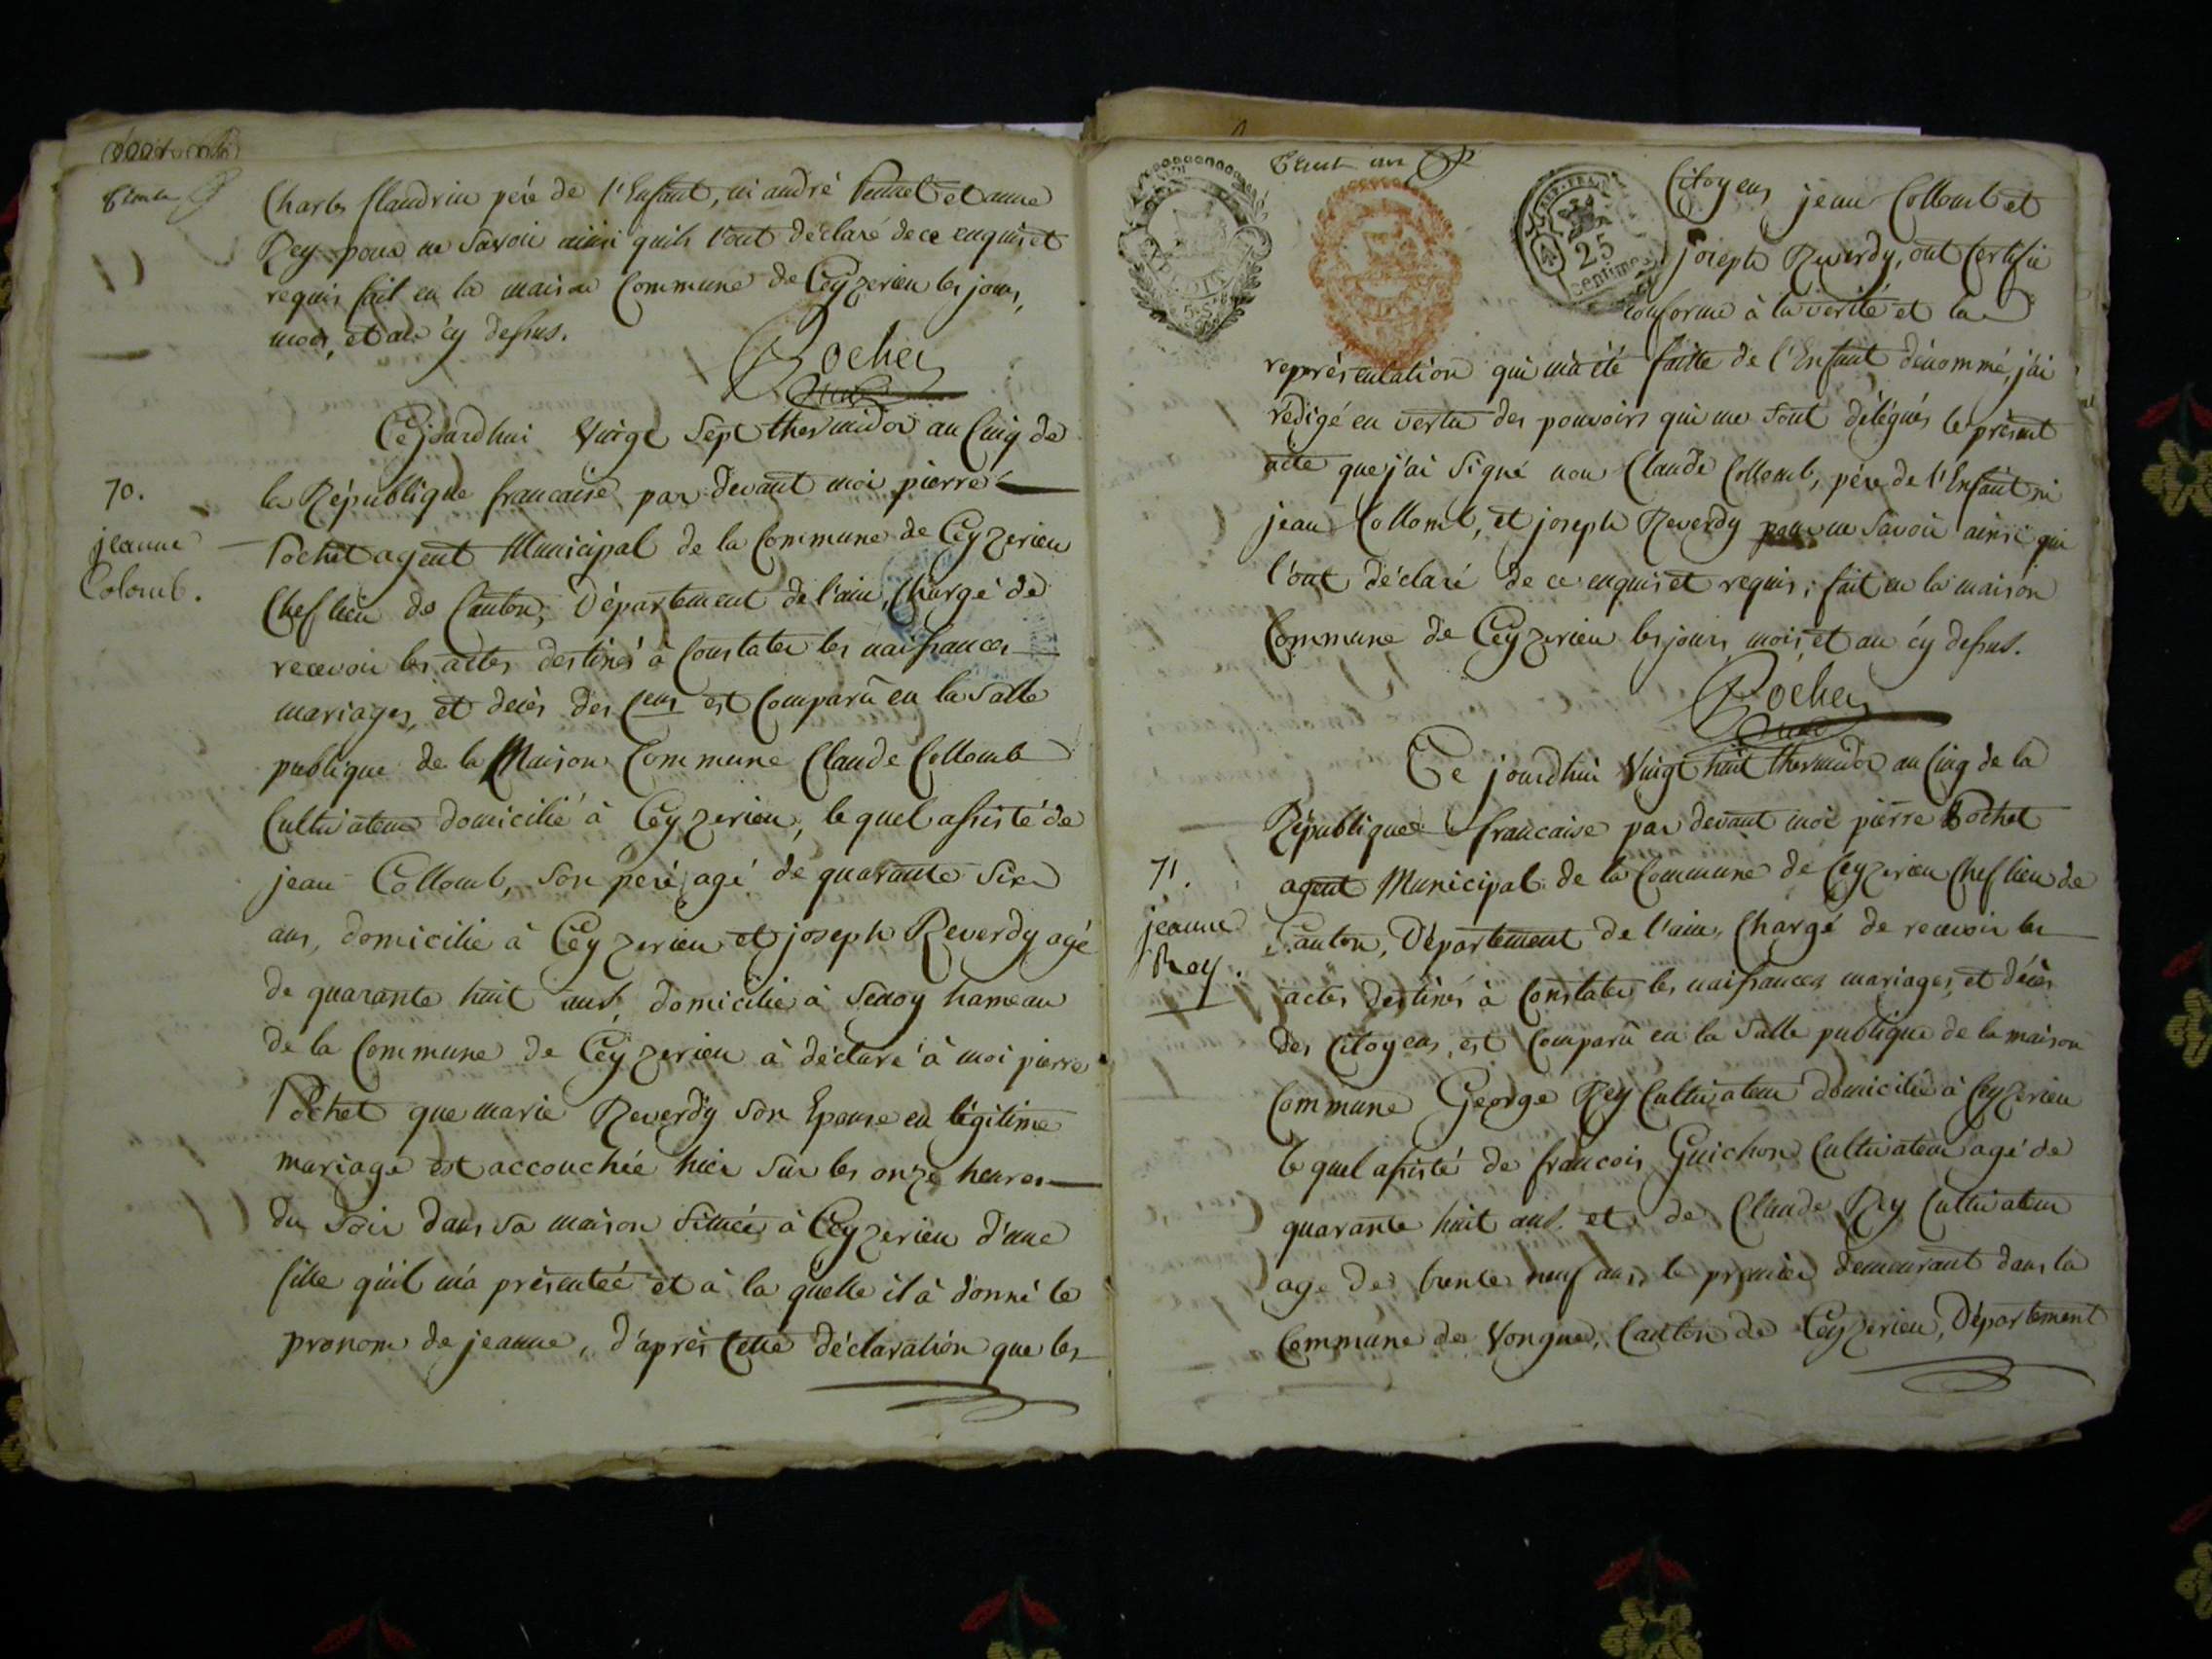 Charles flandrin pére de l'Enfant, ni andré et anne
Rey pour ne Savoir ainsi quils l'ont déclaré de ce enquis et
requis fait en la maison Commune de Ceyzerieu les jour,
mois, et an cy dessus.
Pochet
70.
jeanne
Colomb.
Cejourdhui Vingt Sept thermidor an Cinq de
la République francaise par devant moi pierre
Pochet agent Municipal de la Commune de Ceyzerieu
Chef lieu de Canton, Département de l'ain, Chargé de
recevoir les actes destinés à Constater les naissances
mariages, et decès des Cens est Comparû en la Salle
publique de la Maison Commune Claude Collomb
Cultivateur domicilié à Ceyzerieu, le quel assisté de
jean Collomb, Son pére, agé de quarante Six
ans, domicilié à Ceyzerieu et joseph Reverdy agé
de quarante huit ans, domicilié à Senoy hameau
de la Commune de Ceyzerieu à déclaré à moi pierre
Pochet que marie Reverdy Son Epouse en légitime
mariage est accouchée hier Sur les onze heures
du Soir dans Sa maison Située à Ceyzerieu d'une
fille qu'il m'a présentée et à la quelle il à donné le
prenom de jeanne, d'après Cette déclaration que les
25
centimes
Citoyens jean Collomb et
joseph Reverdy, ont Certifié
conforme à la vérité et la
représentation qui m'à été faitte de l'Enfant dénommé, j'ai
rédigé en vertu des pouvoirs qui me Sont délégués le présent
acte que j'ai Signé non Claude Collomb, pére de l'Enfant ni
jean Collomb, et joseph Reverdy pour ne Savoir ainsi qui
l'ont déclaré de ce enquis et requis; fait en la maison
Commune de Ceyzerieu les jours, mois, et an cy dessus.
Pochet
71.
jeanne
Rey.
Ce jourdhui Vingt huit thermidor an Cinq de la
République francaise par devant moi pierre Pochet
agent Municipal de la Commune de Ceyzerieu Chef lieu de
Canton, Département de l'ain, Chargé de recevoir les
actes destinés à Constater les naissances mariages, et décès
des Citoyens, est Comparû en la Salle publique de la maison
Commune George Rey Cultivateur domicilié à Ceyzerieu
le quel assisté de francois Guichon Cultivateur agé de
quarante huit ans. et de Claude Rey Cultivateur
age de trente neuf ans, le premier demeurant dans la
Commune de Vongne, Canton de Ceyzerieu, Département